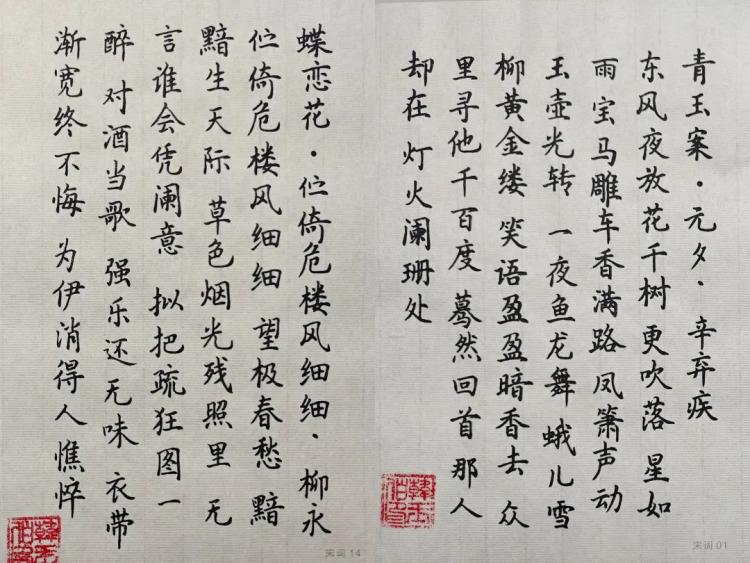 蝶恋花·伫倚危楼风细细·柳永
伫倚危楼风细细 望极春愁 黯
黯生天际 草色烟光残照里 无
言谁会凭阑意 拟把疏狂图一
醉 对酒当歌 强乐还无味 衣带
渐宽终不悔 为伊消得人憔悴
宋词 14
青玉案·元夕·辛弃疾
东风夜放花千树 更吹落 星如
雨 宝马雕车香满路 凤箫声动
玉壶光转 一夜鱼龙舞 蛾儿雪
柳黄金缕 笑语盈盈暗香去 众
里寻他千百度 蓦然回首 那人
却在 灯火阑珊处
宋词 01